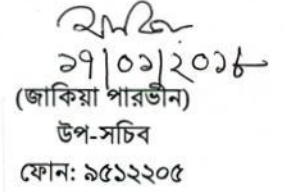 ১৭|০১|২০১৮
(জাকিয়া পারভীন)
উপ-সচিব
ফোন: ৯৫১২২০৫